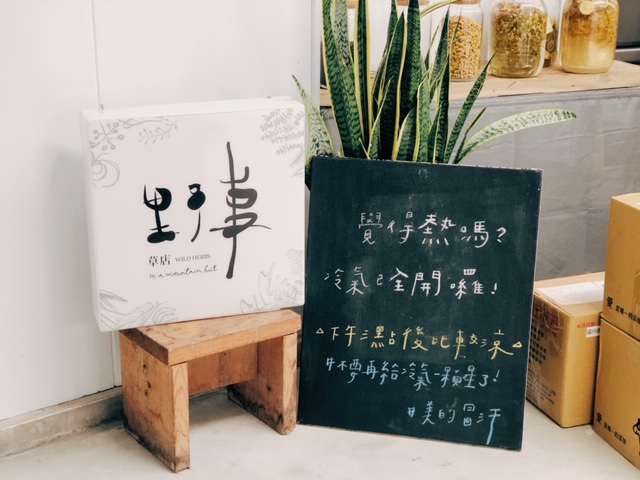 野事
草店 WILD HERBS
by a mountain hut
覺得熱嗎?
冷氣已全開囉!
△下午三點後比較涼△
#不要再給冷氣一顆星了!
#美的冒汗